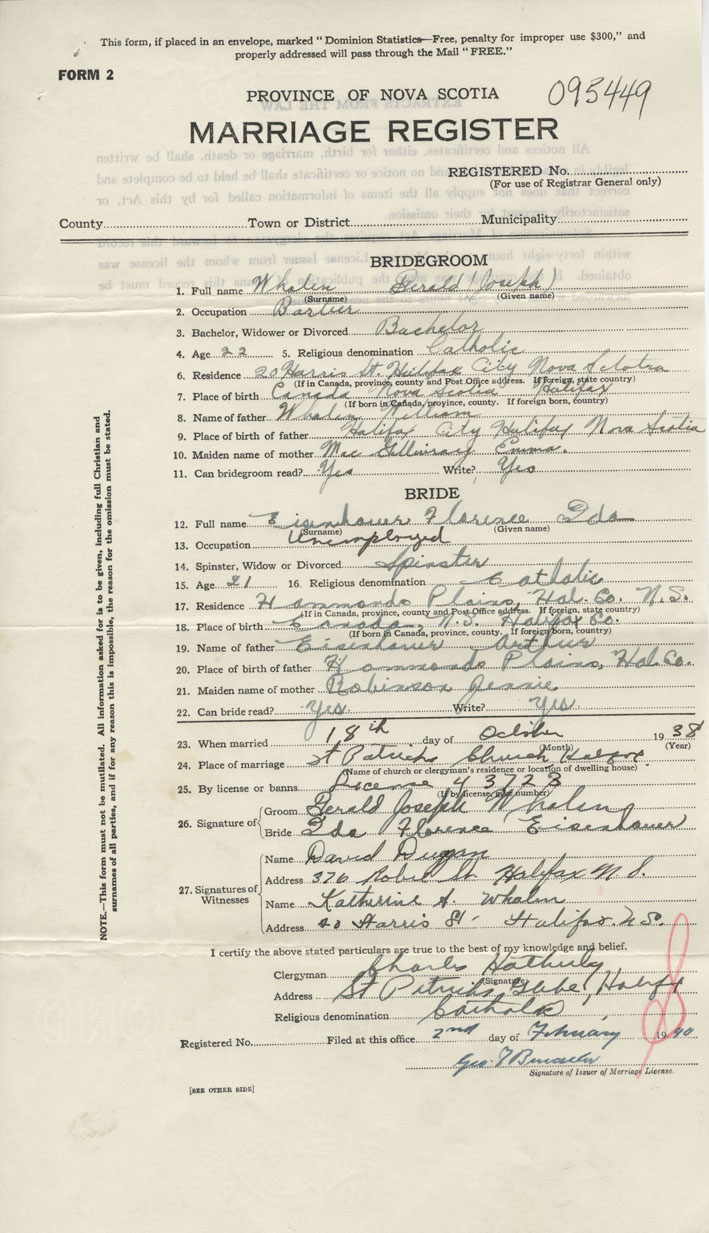 This form, if placed in an envelope, marked "Dominion Statistics—Free, penalty for improper use $300," and
properly addressed will pass through the Mail "FREE."
FORM 2
PROVINCE OF NOVA SCOTIA 095449
MARRIAGE REGISTER
REGISTERED No.
(For use of Registrar General only)
County Town or District Municipality
BRIDEGROOM
1. Full name Whalen Gerald (Joseph)
(Surname) (Given name)
2. Occupation Barber
3. Bachelor, Widower or Divorced Bachelor
4. Age 22 5. Religious denomination Catholic
6. Residence 20 Harris St. Halifax City Nova Scotia
(If in Canada, province, county and Post Office address. If foreign, state country)
7. Place of birth Canada Nova Scotia Halifax
(If born in Canada, province, county. If foreign born, country)
8. Name of father Whalen William
9. Place of birth of father Halifax City Halifax Nova Scotia
10. Maiden name of mother Mac Gillivray Emma.
11. Can bridegroom read? Yes Write? Yes
BRIDE
12. Full name Eisenhauer Florence Ida
(Surname) (Given name)
13. Occupation Unemployed
14. Spinster, Widow or Divorced Spinster
15. Age 21 16. Religious denomination Catholic
17. Residence Hammonds Plains, Hal. Co. N.S.
(If in Canada, province, county and Post Office address. If foreign, state country)
18. Place of birth Canada, N.S. Halifax Co.
(If born in Canada, province, county. If foreign born, country)
19. Name of father Eisenhauer Arthur
20. Place of birth of father Hammonds Plains, Hal. Co.
21. Maiden name of mother Robinson Jennie
22. Can bride read? Yes Write? Yes
23. When married 18th day of October 1938
(Month) (Year)
24. Place of marriage St Patricks Church Halifax.
(Name of church or clergyman's residence or location of dwelling house)
25. By license or banns License 43773
(If by license, give number)
26. Signature of Groom Gerald Joseph Whalen
Bride Ida Florence Eisenhauer
27. Signatures of Witnesses
Name David
Address 376 Robie St Halifax N.S.
Name Katherine A. Whalen
Address 20 Harris St. Halifax. N.S.
I certify the above stated particulars are true to the best of my knowledge and belief.
Clergyman Charles
(Signature)
Address St Patricks Glebe, Halifax
Religious denomination Catholic
Registered No. Filed at this office 2nd day of February 1940
Geo. T
Signature of Issuer of Marriage License.
[SEE OTHER SIDE]
NOTE.—This form must not be mutilated. All information asked for is to be given, including full Christian and
surnames of all parties, and if for any reason this is impossible, the reason for the omission must be stated.